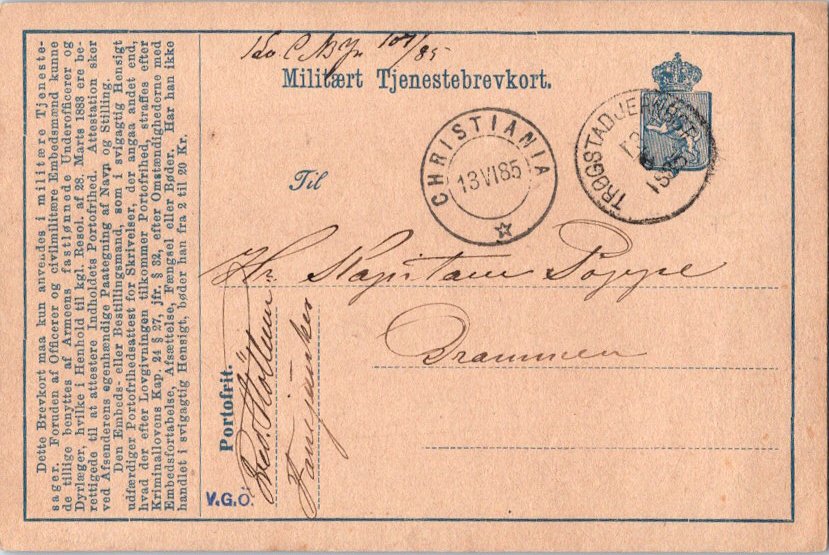 Dette Brevkort maa kun anvendes i militære Tjeneste-
sager. Foruden af Officerer og civilmilitære Embedsmænd kunne
de tillige benyttes af Armeens fastlønnede Underofficerer og
Dyrlæger, hvilke i Henhold til kgl. Resol. af 28. Marts 1883 ere be-
rettigede til at attestere Indholdets Portofrihed. Attestation sker
ved Afsenderens egenhændige Paategning af Navn og Stilling.
Den Embeds- eller Bestillingsmand, som i svigagtig Hensigt
udfærdiger Portofrihedsattest for Skrivelser, der angaa andet end,
hvad der efter Lovgivningen tilkommer Portofrihed, straffes efter
Kriminallovens Kap. 24 § 27, jfr. § 32, efter Omstændighederne med
Embedsfortabelse, Afsættelse, Fængsel eller Bøder. Har han ikke
handlet i svigagtig Hensigt, bøder han fra 2 til 20 Kr.
107/85
Militært Tjenestebrevkort.
CHRISTIANIA
13 VI 85
TRØGSTADJERNBEXP
13
1885
Til
Hr Kapitain Poppe
Drammen
Portofrit.
Furer
V.G.O.